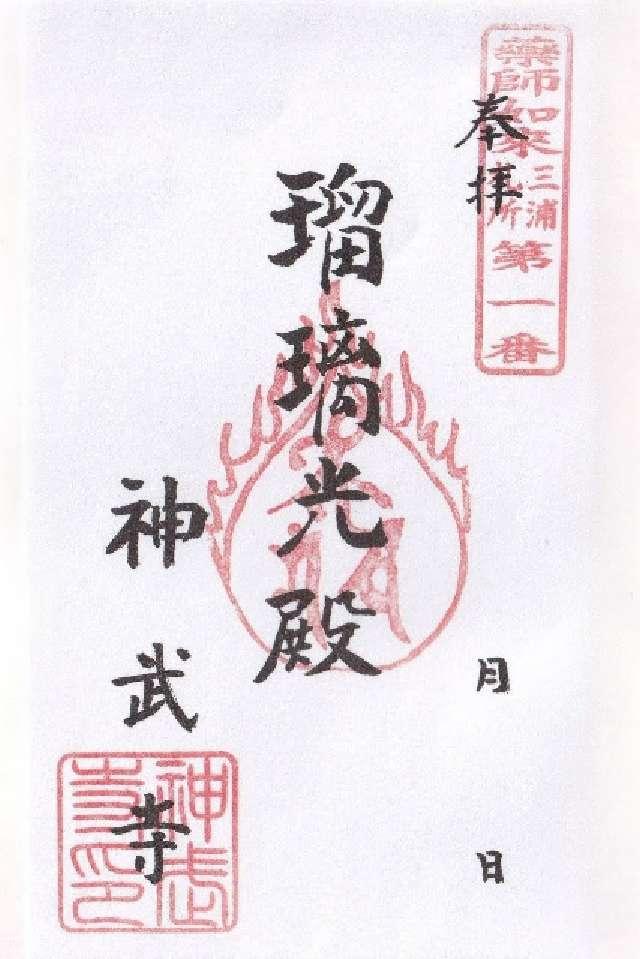 藥師如來
三浦
札所
第一番
奉拝
瑠璃光殿
神武寺
神武寺印
月
日